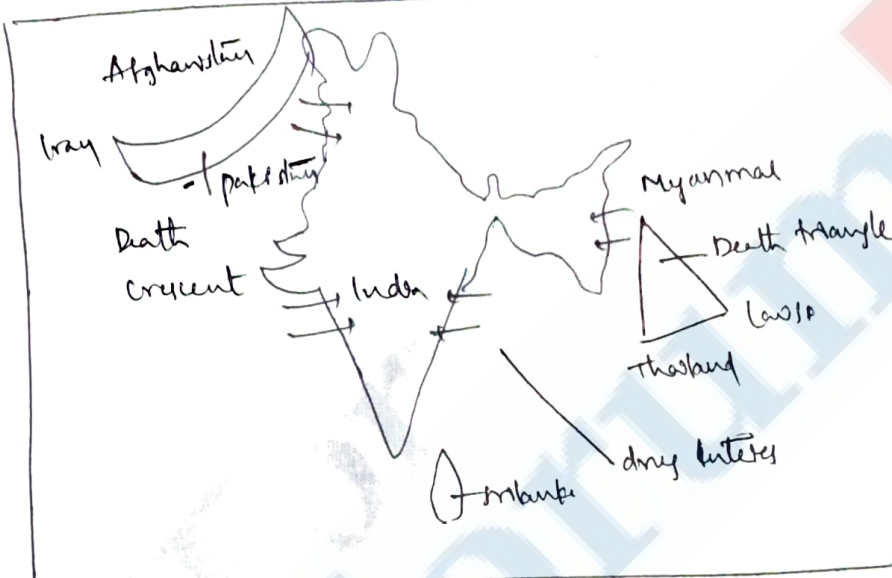 Afghanistan
Iran
pakistan
Death
Crescent
India
Myanmar
Death triangle
Laos
Thailand
drug
Srilanka